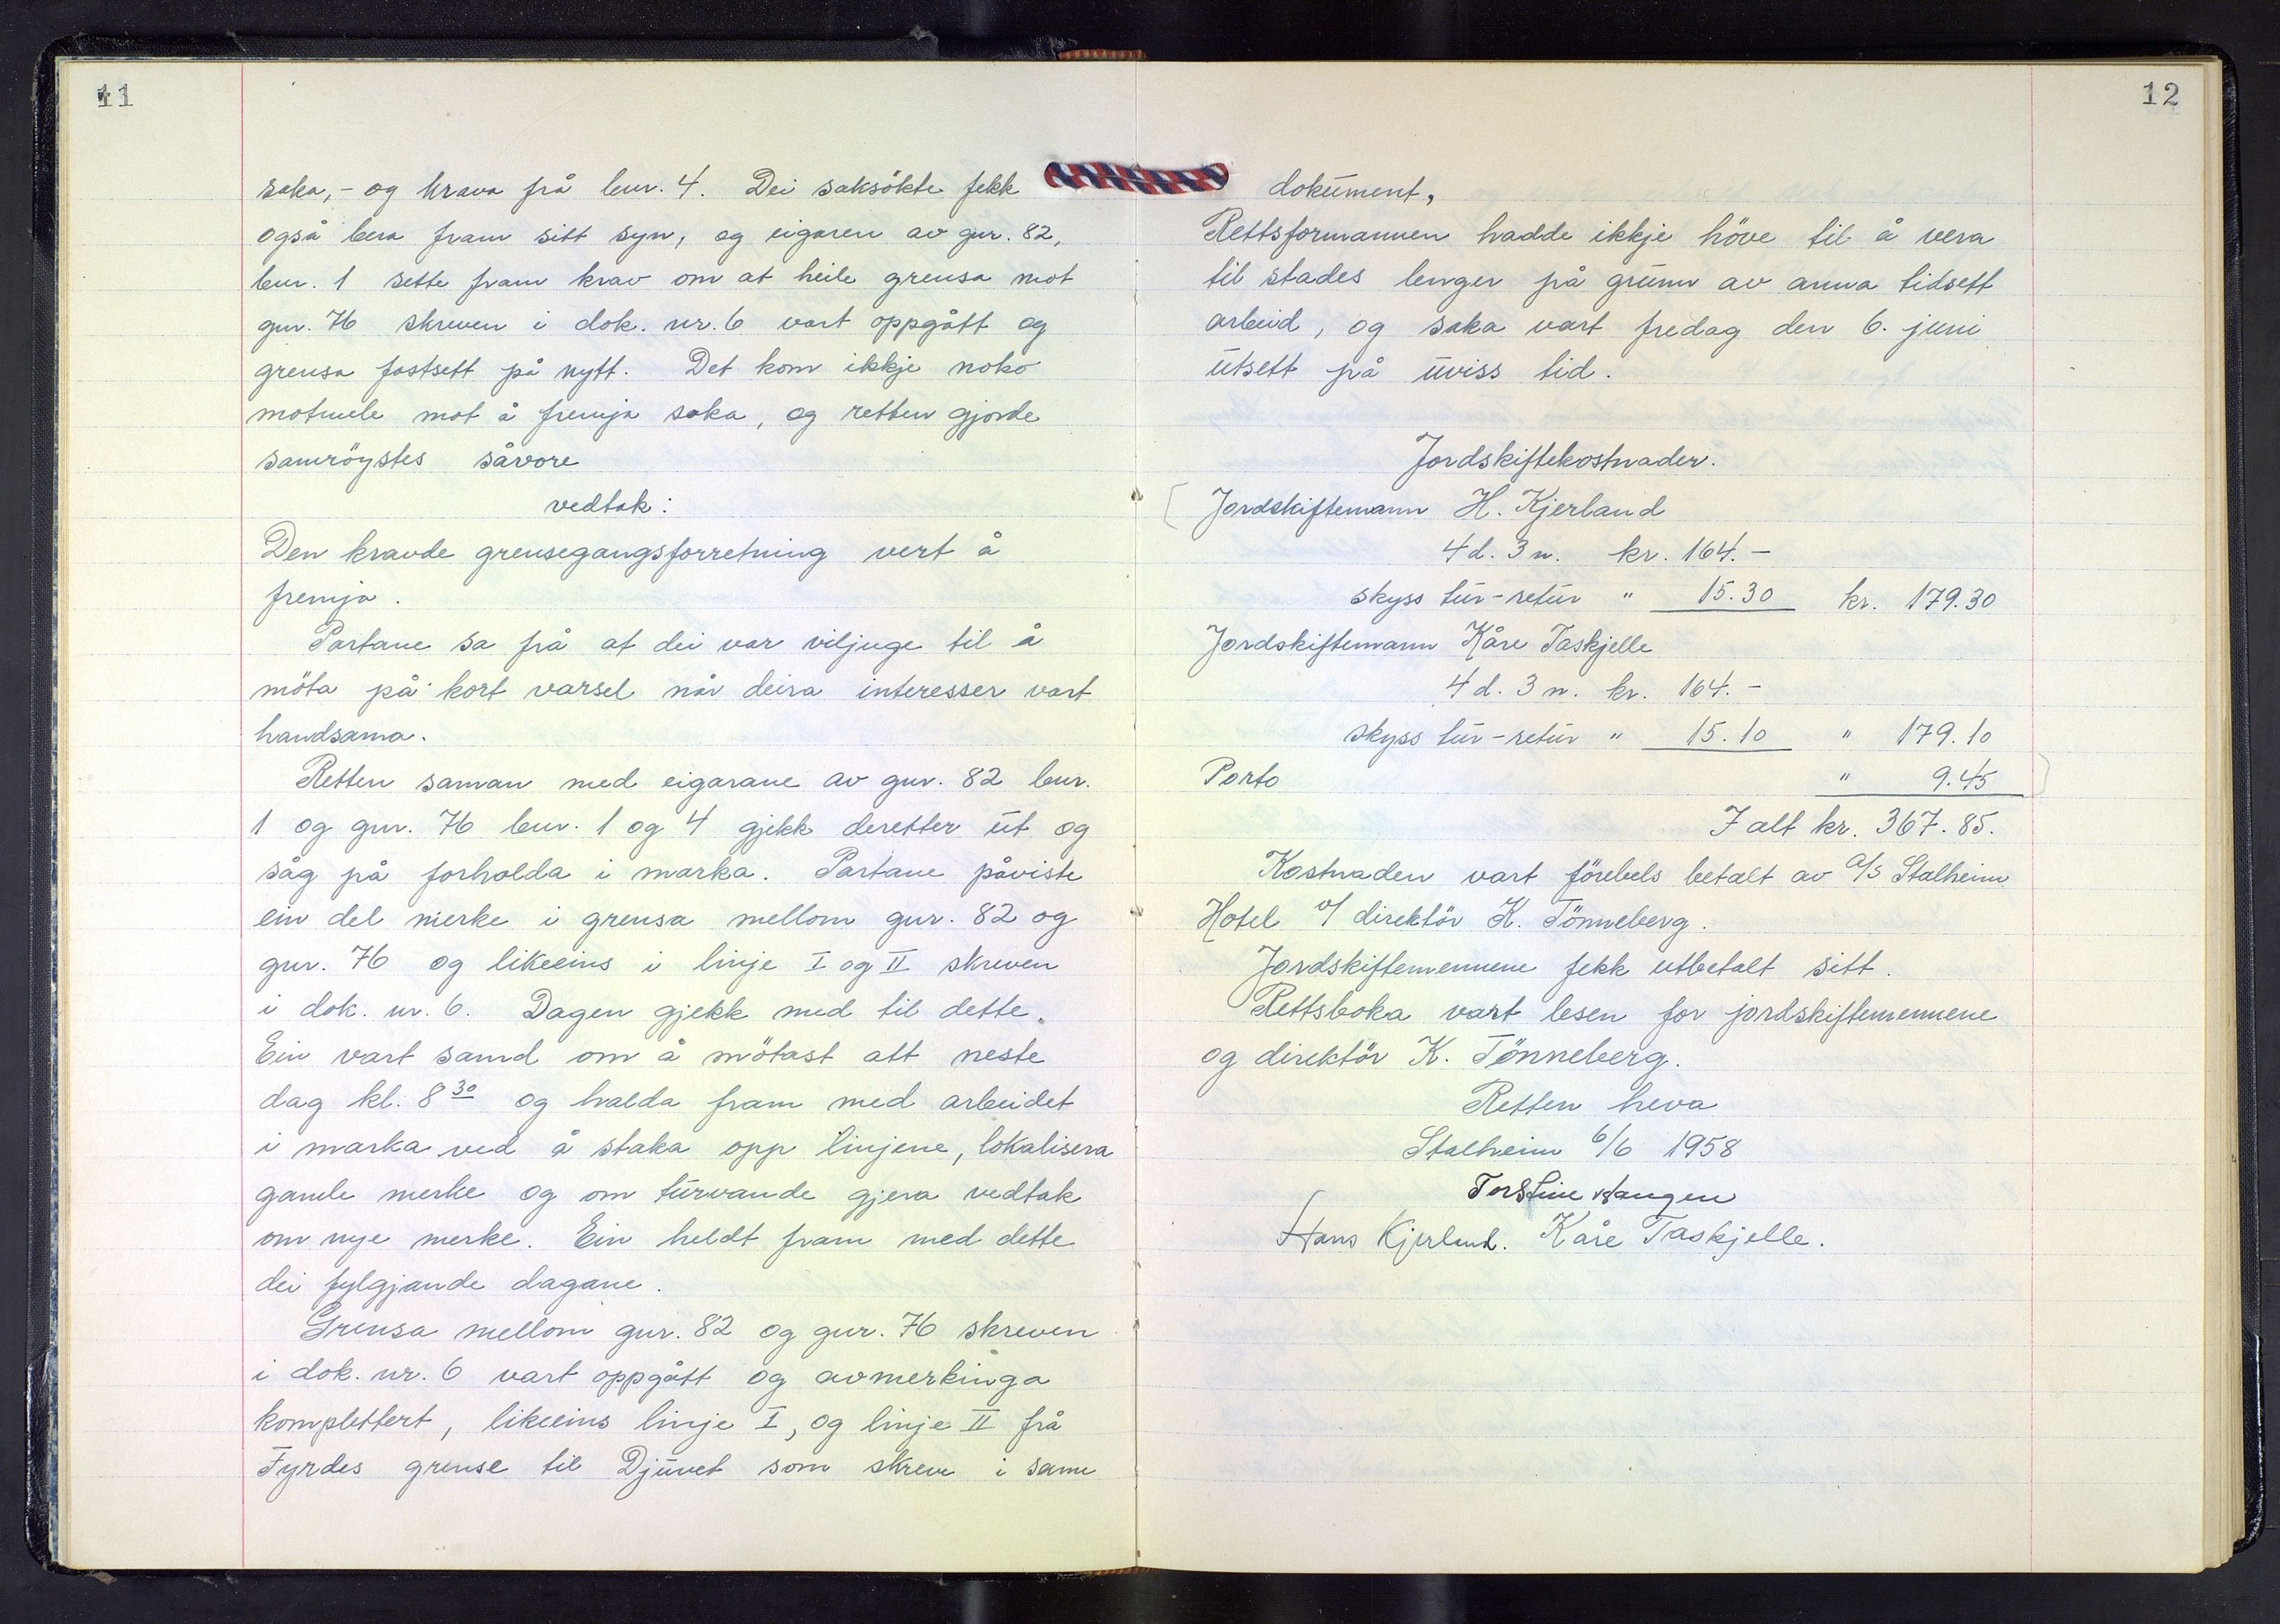 11
saka,- og krava frå bnr. 4. Dei saksökte fekk
også bera fram sitt syn, og eigaren av gnr. 82,
bnr. 1 sette fram krav om at heile grensa mot
gnr. 76 skreven i dok. nr. 6 vart oppgått og
grensa fastsett på nytt. Det kom ikkje noko
motmele mot å fremja saka, og retten gjorde
samröystes såvore
vedtak:
Den kravde grensegangsforretning vert å
fremja.
Partane sa frå at dei var viljuge til å
möta på kort varsel når deira interesser vart
handsama.
Retten saman med eigarane av gnr. 82 bnr.
1 og gnr. 76 bnr. 1 og 4 gjekk deretter ut og
såg på forholda i marka. Partane påviste
ein del merke i grensa mellom gnr. 82 og
gnr. 76 og likeeins i linje I og II skreven
i dok. nr. 6. Dagen gjekk med til dette.
Ein vart samd om å mötast att neste
dag kl. 8 30 og halda fram med arbeidet
i marka ved å staka opp linjene, lokalisera
gamle merke og om turvande gjera vedtak
om nye merke. Ein heldt fram med dette
dei fylgjande dagane.
Grensa mellom gnr. 82 og gnr. 76 skreven
i dok. nr. 6 vart oppgått og avmerkinga
komplettert, likeeins linje I, og linje II frå
Fyrdes grense til Djuvet som skreve i same
12
dokument,
Rettsformannen hadde ikkje höve til å vera
til stades lenger på grunn av anna tidsett
arbeid, og saka vart fredag den 6. juni
utsett på uviss tid.
Jordskiftekostnader.
Jordskiftemann H. Kjerland
4 d. 3 n. kr. 164.-
skyss tur-retur " 15.30 kr. 179.30
Jordskiftemann Kåre Taskjelle
4 d. 3 n. kr. 164.-
skyss tur-retur " 15.10 " 179.10
Porto " 9.45
I alt kr. 367.85.
Kostnaden vart förebels betalt av A/S Stalheim
Hotel v/ direktör K. Tönneberg.
Jordskiftemennene fekk utbetalt sitt.
Rettsboka vart lesen for jordskiftemennene
og direktör K. Tönneberg.
Retten heva
Stalheim 6/6 1958
Torstine Haugen
Hans Kjerland. Kåre Taskjelle.